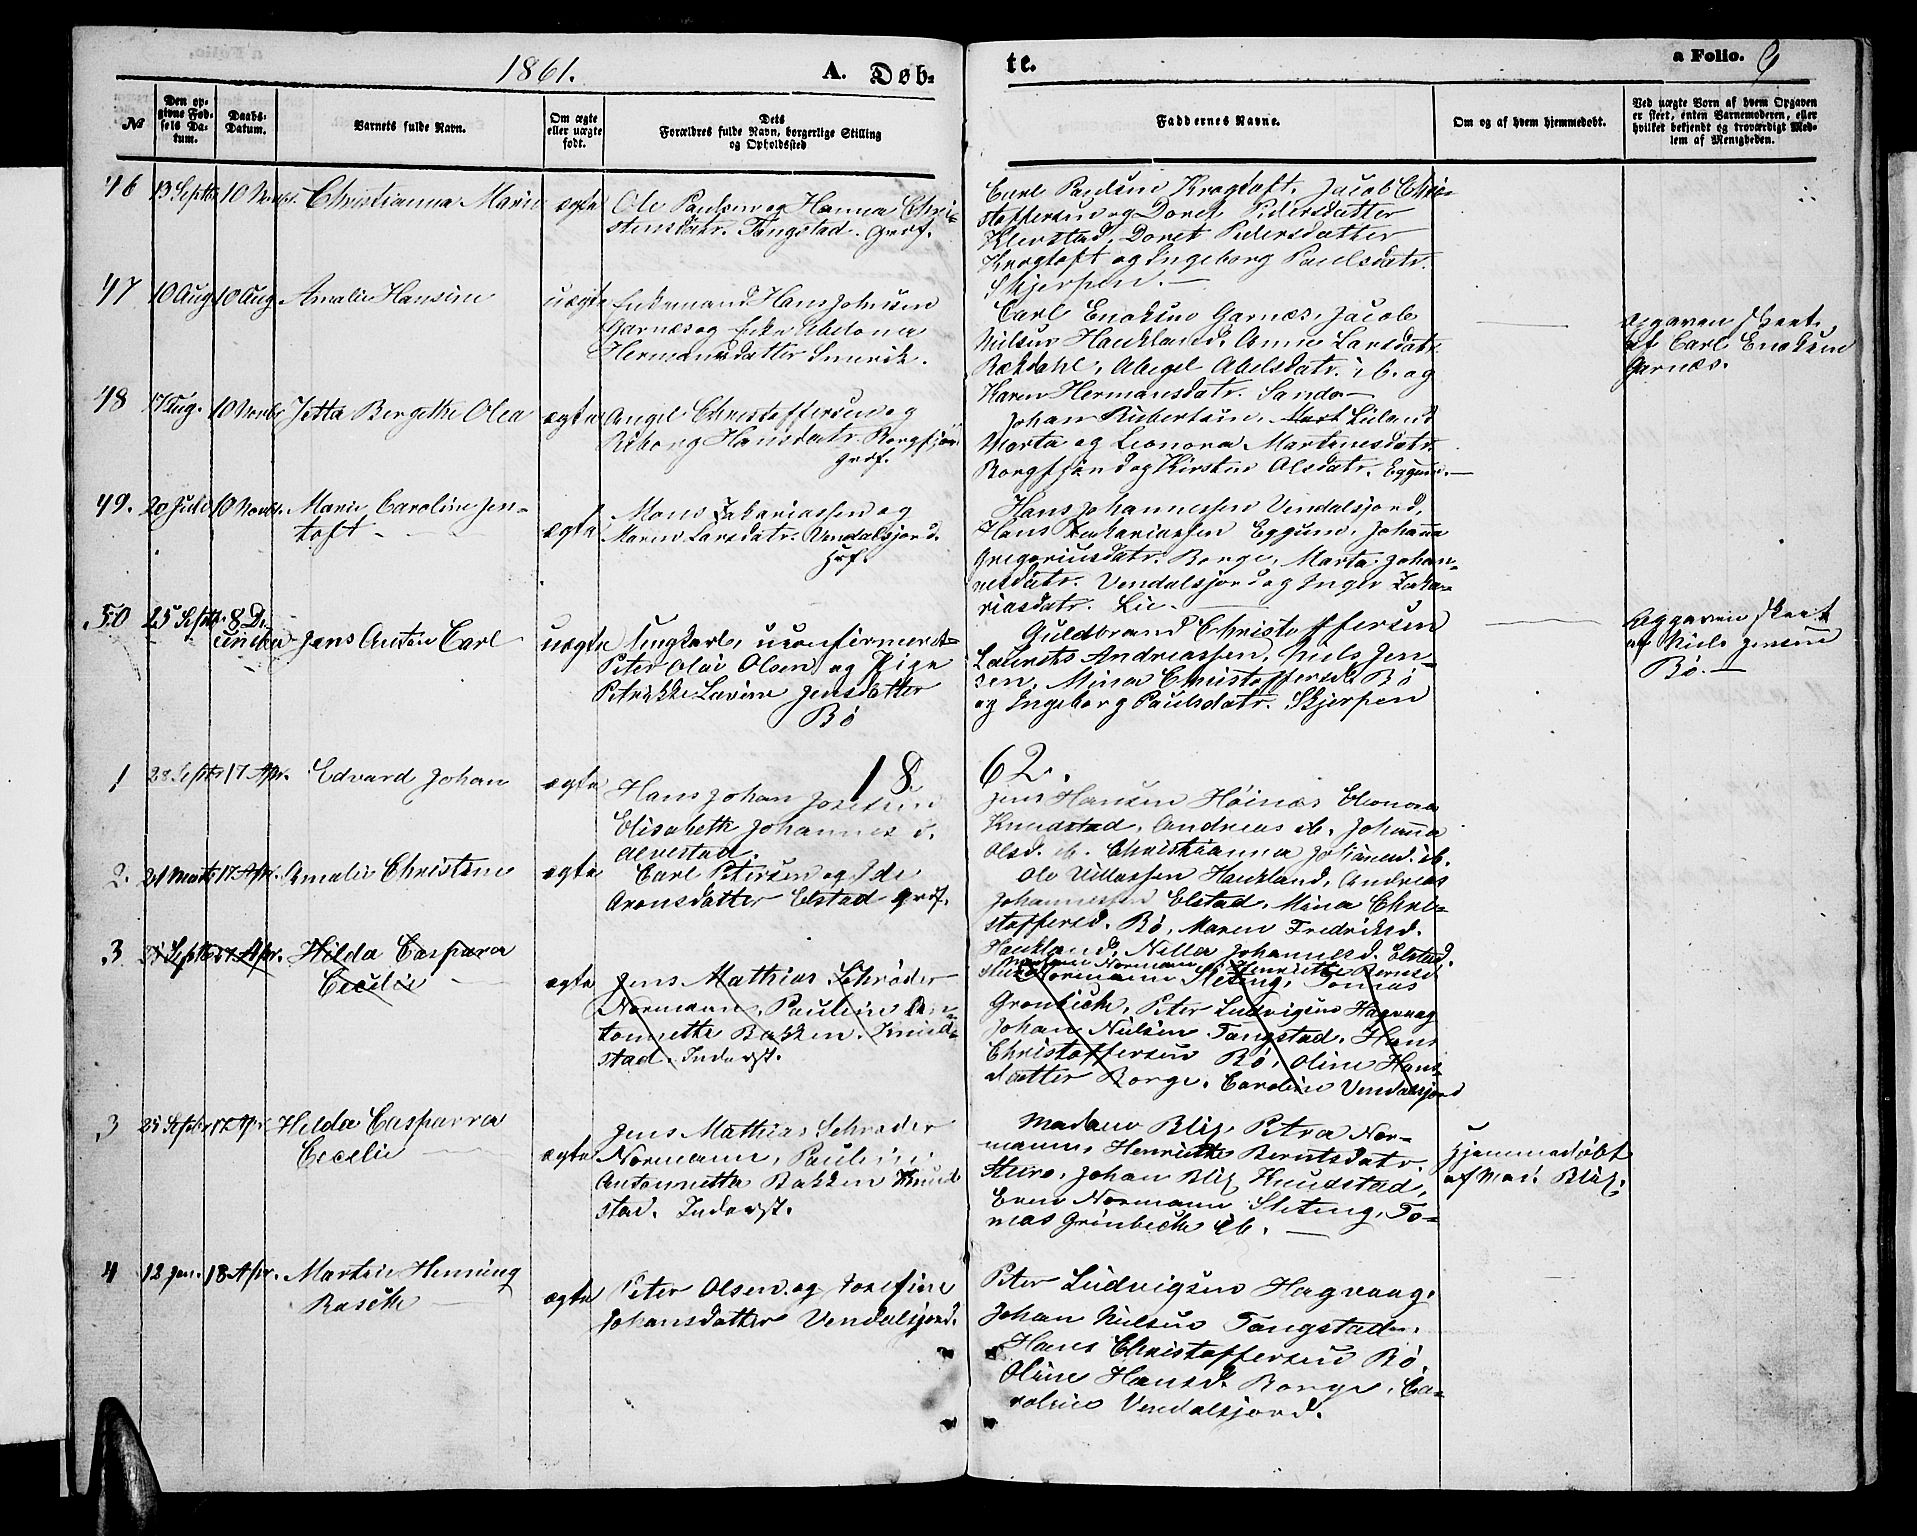 1861. A. Døb-
te. a Folio. 9
№
Den op-
givne Fød-
sels Da-
tum.
Daabs-
Datum.
Barnets fulde Navn.
Om ægte
eller uægte
født.
Dets
Forældres fulde Navn, borgerlige Stilling
og Opholdssted
Faddernes Navne.
Om og af hvem hjemmedøbt.
Ved uægte Børn af hvem Opgaven
er skeet, enten Barnemoderen, eller
hvilket bekjendt og troværdigt Med-
lem af Menigheden.
46 13 Septbr 10 Novbr. Christianna Marie ægte Ole Paulsen og Hanna Chri-
stensdatr. Tangstad. Grdf.
Carl Paulsen Krogtoft, Jacob Chri-
stoffersen og Doret Pedersdatter
Klevstad, Doret Pedersdatter
Krogtoft og Ingeborg Paulsdatr.
Skjerpen.
47 10 Aug 10 Aug Amalie Hansine uægte Enkemand Hans Johnsen
Garnæs og Enke Abelona
Hermansdatter Smorik.
Carl Enoksen Garnæs, Jacob
Nielsen Haukland, Anne Larsdatr.
Rækdahl, Abegel Abelsdatr. ib. og
Karen Hermansdatr. Sando
Opgaven skeet
af Carl Enoksen
Garnæs.
48 17 Aug. 10 Novbr Jetta Bergethe Olea ægte Angel Christoffersen og
Riborg Hansdatr. Borgfjør
Grdf.
Johan Robertsen, Mart Liland
Marta og Leonora Martinesdatr.
Borgfjørd og Kirstine Olsdatr. Eggum.
49. 20 Juli 10 Novbr. Marie Caroline Jen-
toft ægte Mons Zakariassen og
Maren Larsdatr. Vendalsjord.
Hrf.
Hans Johannessen Vendalsjord,
Hans Zakariassen Eggum, Johanna
Gregoriusdatr. Borge, Marta Johan-
nesdatr. Vendalsjord og Inger Zaka-
riasdatr. Lie.
50 25 Septbr 8 De-
cember Jens Anton Carl uægte Ungkarl, uconfirmeret
Peter Olai Olsen og Pige
Petrikke Lavine Jensdatter
Bø
Guldbrand Christoffersen
Laurits Andreassen, Niels Jen-
sen, Mina Christoffersd. Bø
og Ingeborg Paulsdatr. Skjerpen
Opgaven skeet
af Niels Jensen
Bø.
1862.
1 28 Septbr 17 Apr. Edvard Johan ægte Hans Johan Josefsen
Elisabeth Johannes d.
Alvestad.
Jens Hansen Høinæs Eleonora
Knudstad, Andreas ib. Johanna
Olsd. ib. Christianna Johansd. ib.
2. 21 Marts 17 Apr. Amalie Christine ægte Carl Petersen og Ide
Aronsdatter Elstad Grdf.
Ole Villassen Haukland, Andreas
Johannessen Elstad, Mina Chri-
stoffersd. Bø, Maren Fredriksd.
Haukland, Nilla Johannesd. Elstad.
3 25 Septbr 17 Apr. Hilda Caspara
Cecelie ægte Jens Mathias Schrøder
Normann, Pauline An-
tonnette Bakken. Knud-
stad. Inderst.
Normann Sleting, Tomas
Grønbech, Peter Ludvigsen Hagvaag
Johan Nielsen Tangstad, Hans
Christoffersen Bø, Oline Hans-
datter Borge, Caroline Vendalsjord
3 25 Septbr 17 Apr. Hilda Casparra
Cecelie ægte Jens Mathias Schrøder
Normann, Pauline
Antonnetta Bakken Knud-
stad. Inderst.
Madam Blix Petra Nor-
manne, Henriette Berntsdatr.
Steiro, Johan Blix Knudstad,
Even Normann Sleting, To-
mas Grønbech ib.
Hjemmedøbt
af Mad. Blix.
4 12 Jan. 18 Apr. Martin Henning
Rasch ægte Peter Olsen og Josefine
Johansdatter Vendalsjord.
Peter Ludvigsen Hagvaag.
Johan Nielsen Tangstad.
Hans Christoffersen Bø
Oline Hansd. Borge, Ca-
roline Vendalsjord.